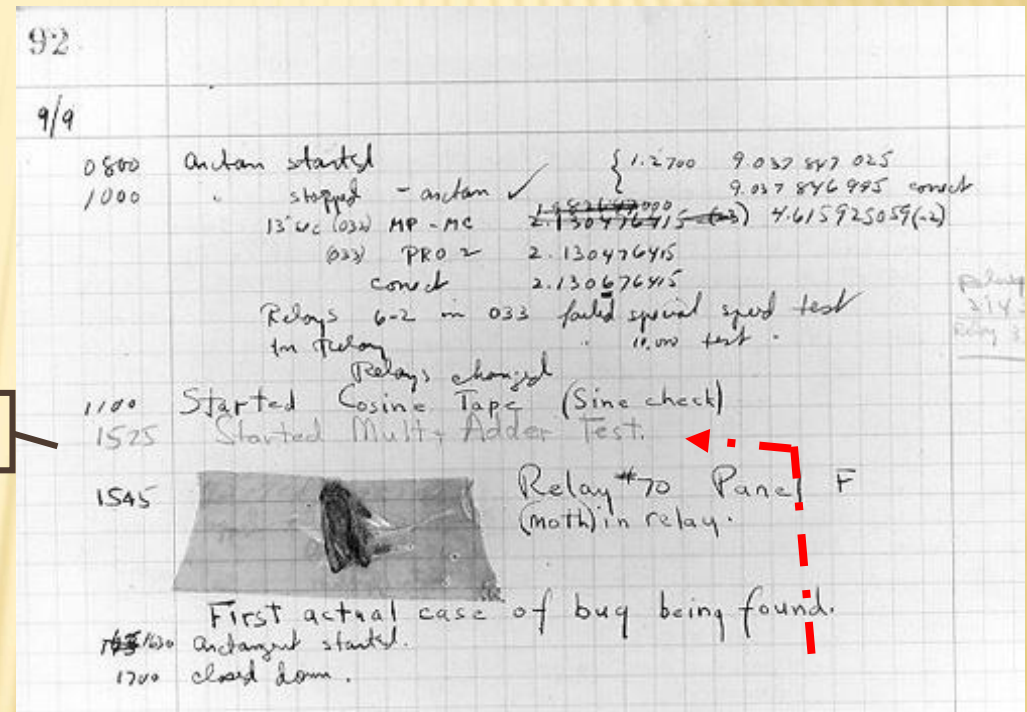 92
9/9
0800 arctan started { 1.2700 9.037 847 025
1000 " stopped - arctan ✓ { 9.037 846 995 correct
13"uc (032) MP - MC 2.130476415 (-3) 4.615925059(-2)
(033) PRO 2 2.130476415
correct 2.130676415
Relays 6-2 in 033 failed special speed test
in relay " 10,000 test .
Relays changed
1100 Started Cosine Tape (Sine check)
1525 Started Mult + Adder Test.
1545 Relay #70 Panel F
(moth) in relay.
First actual case of bug being found.
1630 arctangent started.
1700 closed down.